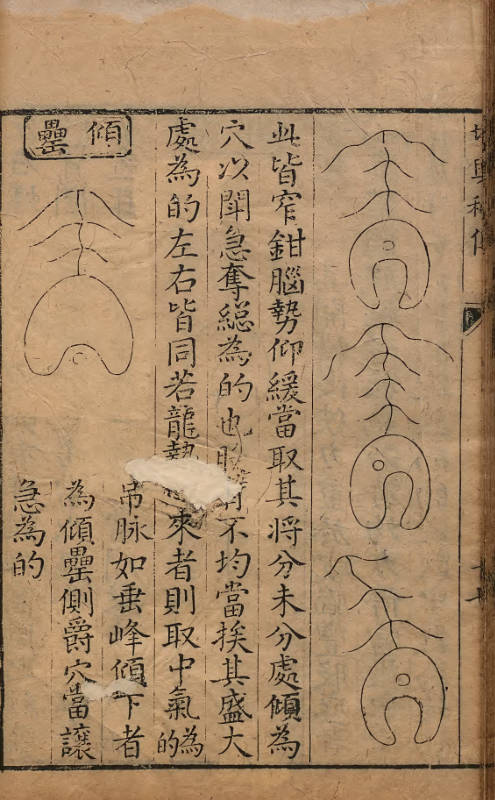 此皆窄鉗腦勢仰緩當取其將分未分處傾為
穴以鬪急奪緦為的也 不均當挨其盛大
處為的左右皆同若龍勢 來者則取中氣為的
傾罍
吊脉如垂峰傾下者
為傾罍側爵穴當讓
急為的